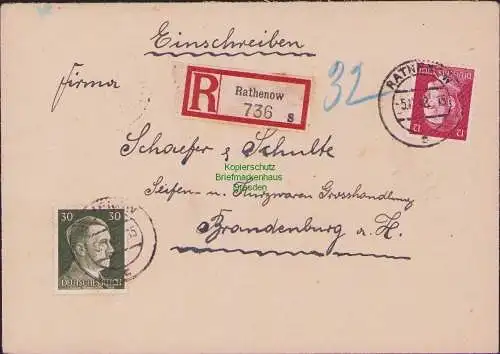 Einschreiben
Firma
R
Rathenow
736 s
32
RATHENOW
12 12
Schaefer & Schulte
Kopierschutz
Briefmarkenhaus
Dresden
Seifen- u. Kurzwaren Grosshandlung
Brandenburg a. H.
30 30
DEUTSCHES REICH